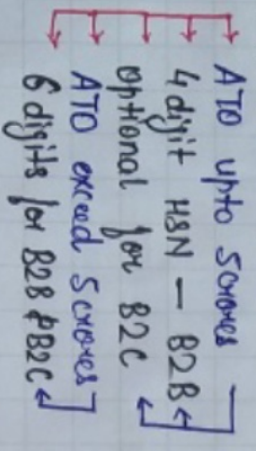 ATO upto 5crores
4 digit HSN — B2B
optional for B2C
ATO exceed 5crores
6 digits for B2B & B2C